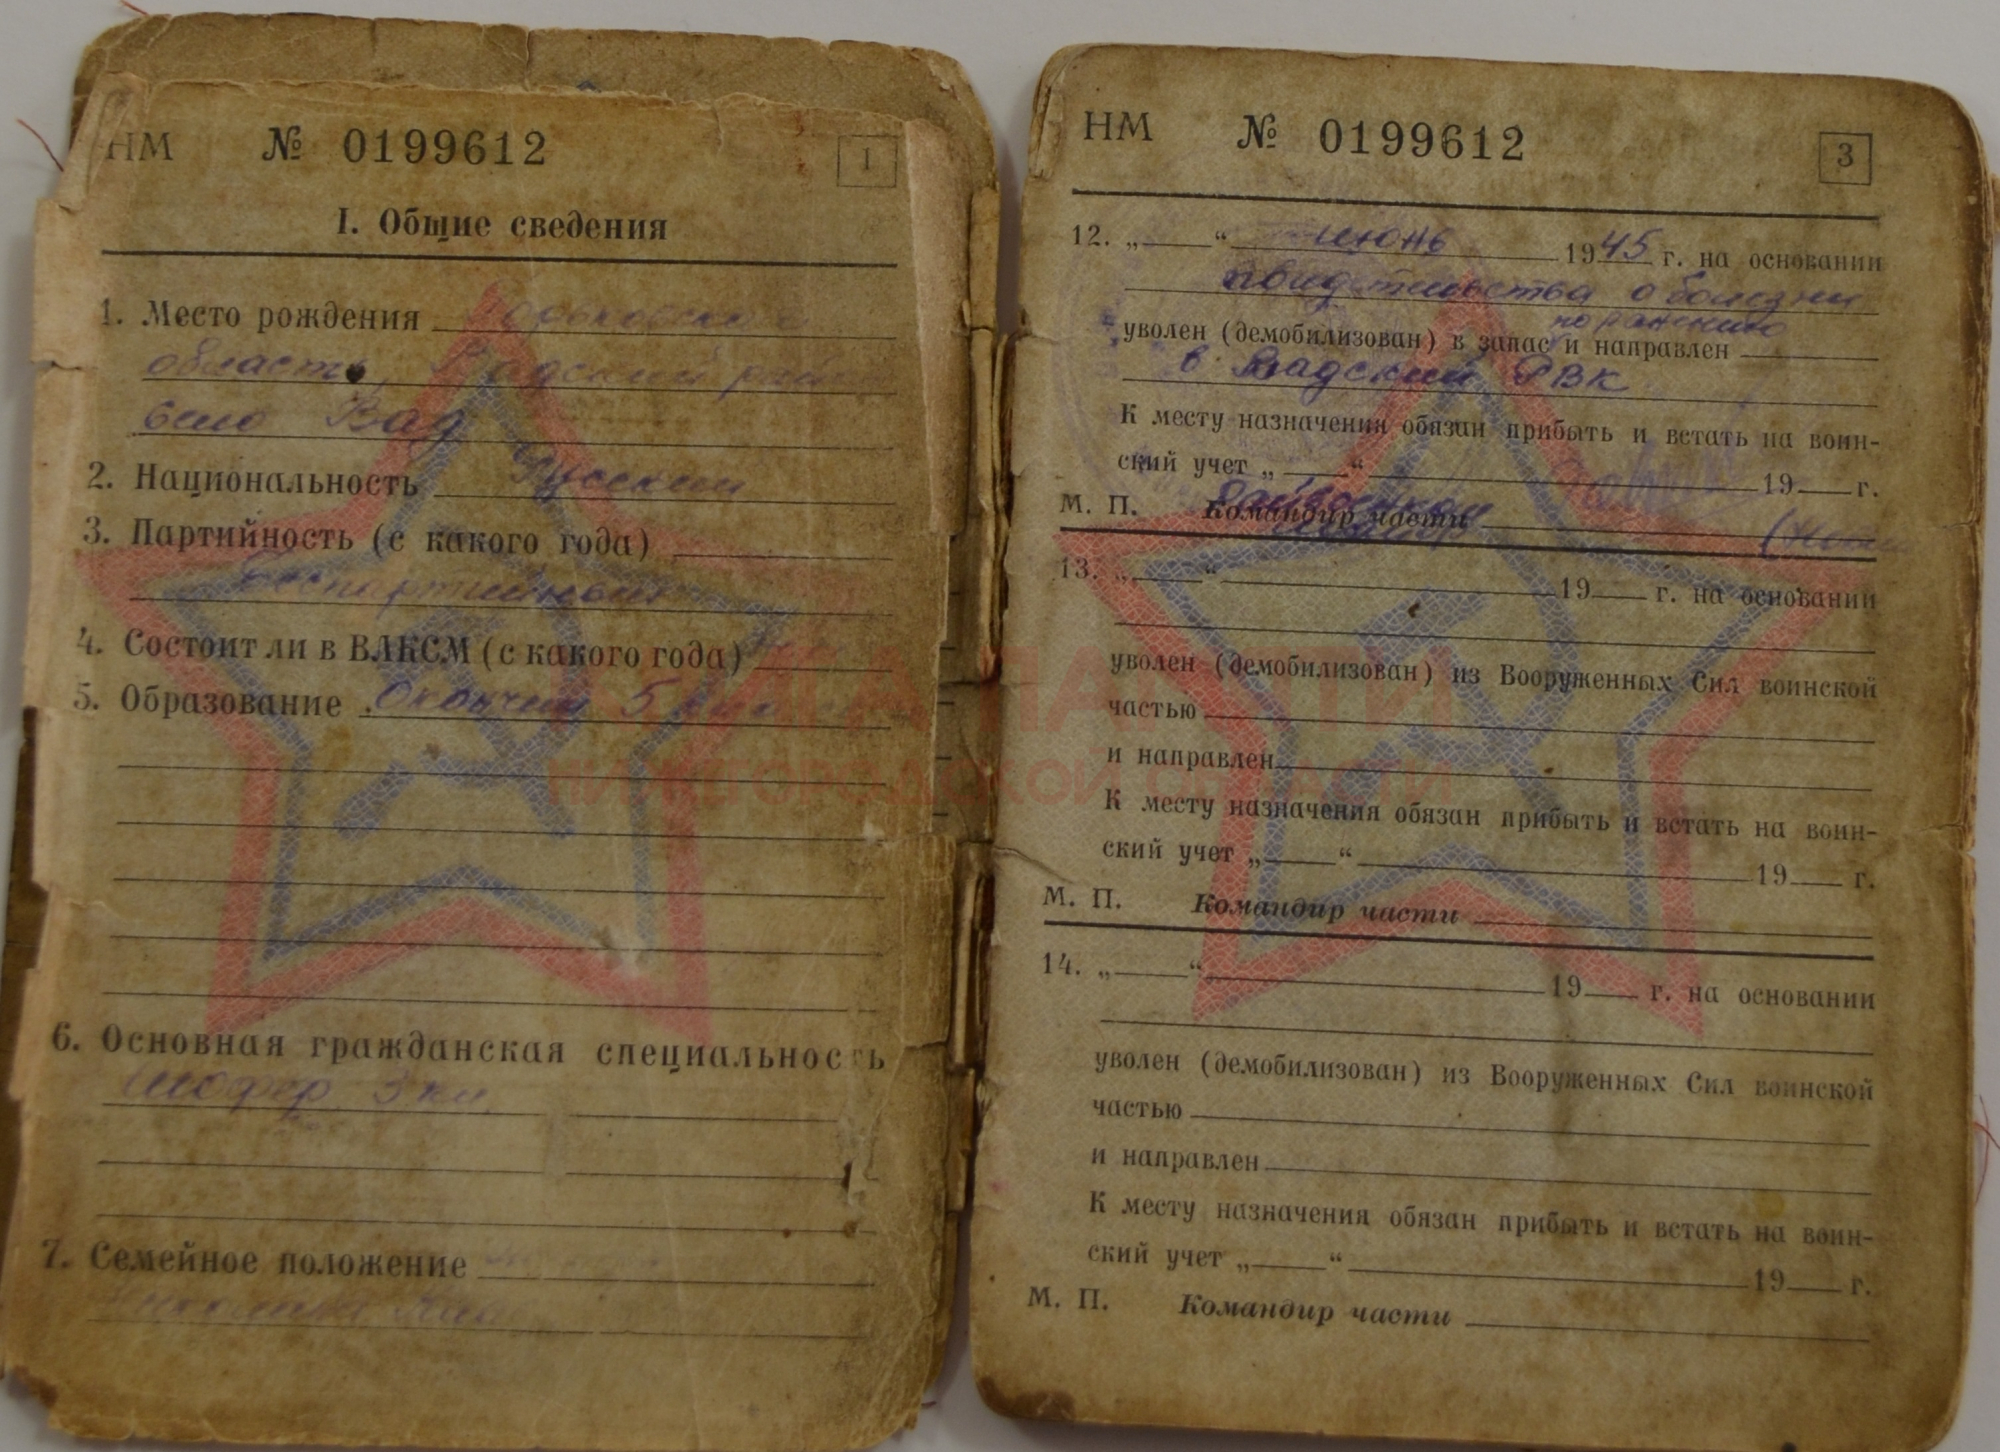 НМ № 0199612 1
I. Общие сведения
1. Место рождения Горьковская
область, Вадский район
село Вад
2. Национальность Русский
3. Партийность (с какого года)
беспартийный
4. Состоит ли в ВЛКСМ (с какого года)
5. Образование Окончил 5 кл
6. Основная гражданская специальность
Шофер 3 кл.
7. Семейное положение
НМ № 0199612 3
12. „ “ июнь 1945 г. на основании
свидетельства о болезни
по ранению
уволен (демобилизован) в запас и направлен
в Вадский РВК
К месту назначения обязан прибыть и встать на воин-
ский учет „ “ 19 г.
М. П. Командир части
13. „ “ 19 г. на основании
уволен (демобилизован) из Вооруженных Сил воинской
частью
и направлен
К месту назначения обязан прибыть и встать на воин-
ский учет „ “ 19 г.
М. П. Командир части
14. „ “ 19 г. на основании
уволен (демобилизован) из Вооруженных Сил воинской
частью
и направлен
К месту назначения обязан прибыть и встать на воин-
ский учет „ “ 19 г.
М. П. Командир части
КНИГА ПАМЯТИ
НИЖЕГОРОДСКОЙ ОБЛАСТИ